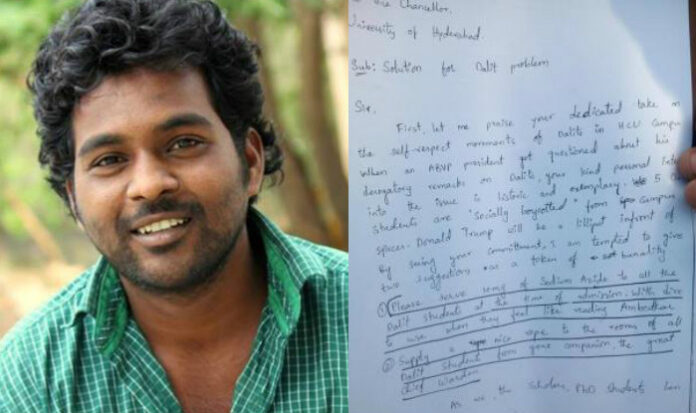 Vice Chancellor,
University of Hyderabad.
Sub: Solution for Dalit problem
Sir,
First, let me praise your dedicated take on
the self-respect movements of Dalits in HCU Campus
When an ABVP president got questioned about his
derogatory remarks on Dalits, your kind personal
into the issue is historic and exemplary. 5
students are "Socially boycotted" from campus
spaces. Donald Trump will be a lilliput infront of
By seeing your commitment, I am tempted to give
two suggestions as a token of banality
① Please serve of Sodium Azide to all the
Dalit students at the time of admission. With
to use when they feel like reading
② Supply a nice rope to the rooms of all
Dalit students from your companion, the great
chief Warden
As we, the scholars, PhD students